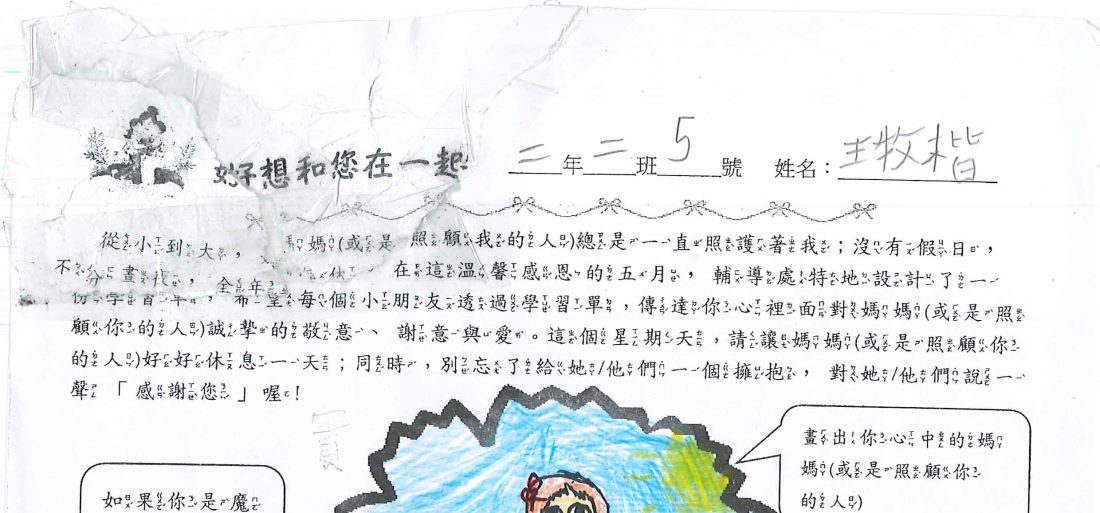 好想和您在一起
二年二班5號 姓名：王牧楷
從小到大，媽(或是照顧我的人)總是一直照護著我；沒有假日，
不分晝夜，全年 在這溫馨感恩的五月，輔導處特地設計了一
份學習單，希望每個小朋友透過學習單，傳達你心裡面對媽媽(或是照
顧你的人)誠摯的敬意、謝意與愛。這個星期天，請讓媽媽(或是照顧你
的人)好好休息一天；同時，別忘了給她/他們一個擁抱，對她/他們說一
聲「感謝您」喔！
畫出你心中的媽
媽(或是照顧你
的人)
如果你是魔